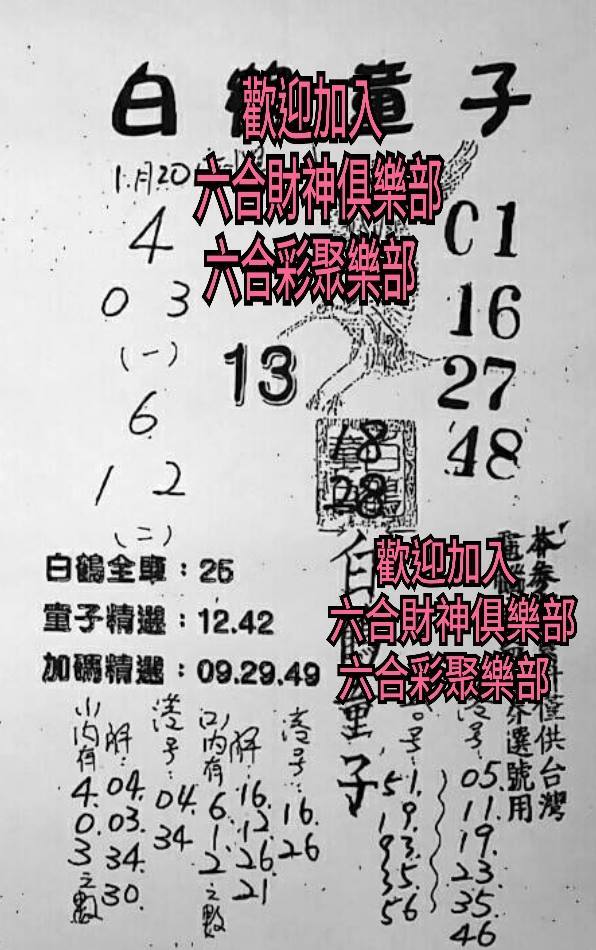 白鶴童子
歡迎加入
六合財神俱樂部
六合彩聚樂部
1月20
4
0 3
(一)
6
1 2
(二)
13
01
16
27
48
18
28
白鶴全車：25
童子精選：12.42
加碼精選：09.29.49
歡迎加入
六合財神俱樂部
六合彩聚樂部
白鶴童子
僅供台灣
選號用
(一)內有4.0.3之數
解：04.03.34.30.
港号：04.34
(二)內有6.1.2之數
解：16.12.26.21
港号：16.26
51.
19.
93.
35.
56
港号：05.11.19.23.35.46